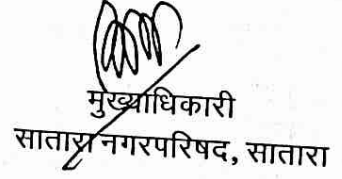 मुख्याधिकारी
सातारा नगरपरिषद, सातारा